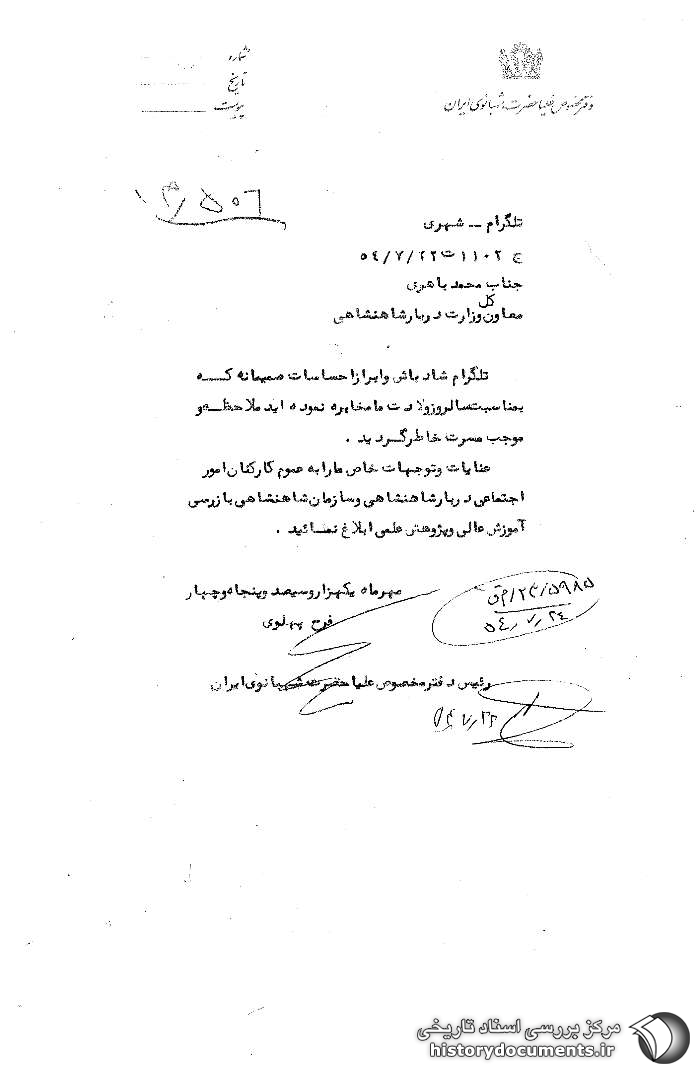 شماره
تاریخ
پیوست
دفتر مخصوص علیاحضرت شهبانوی ایران
تلگرام ــ شهری
ج ۱۱۰۲ ت ۵۴/۷/۲۲
جناب محمد باهری
معاون کل وزارت دربار شاهنشاهی
تلگرام شادباش و ابراز احساسات صمیمانه که
بمناسبت سالروز ولادت ما مخابره نموده اید ملاحظه و
موجب مسرت خاطر گردید .
عنایات و توجهات خاص ما را به عموم کارکنان امور
اجتماعی دربار شاهنشاهی و سازمان شاهنشاهی بازرسی
آموزش عالی و پژوهش علمی ابلاغ نمائید .
مهرماه یکهزار و سیصد و پنجاه و چهار
فرح پهلوی
۲۴/۵۹۸۵/م ق
۵۴٫۷٫۲۴
رئیس دفتر مخصوص علیاحضرت شهبانوی ایران
مرکز بررسی اسناد تاریخی
historydocuments.ir